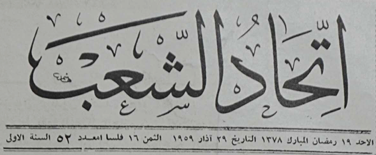 اتِّحَادُ الشَّعْبِ
الاحد ١٩ رمضان المبارك ١٣٧٨ التاريخ ٢٩ آذار ١٩٥٩ الثمن ١٦ فلسا العدد ٥٢ السنة الاولى